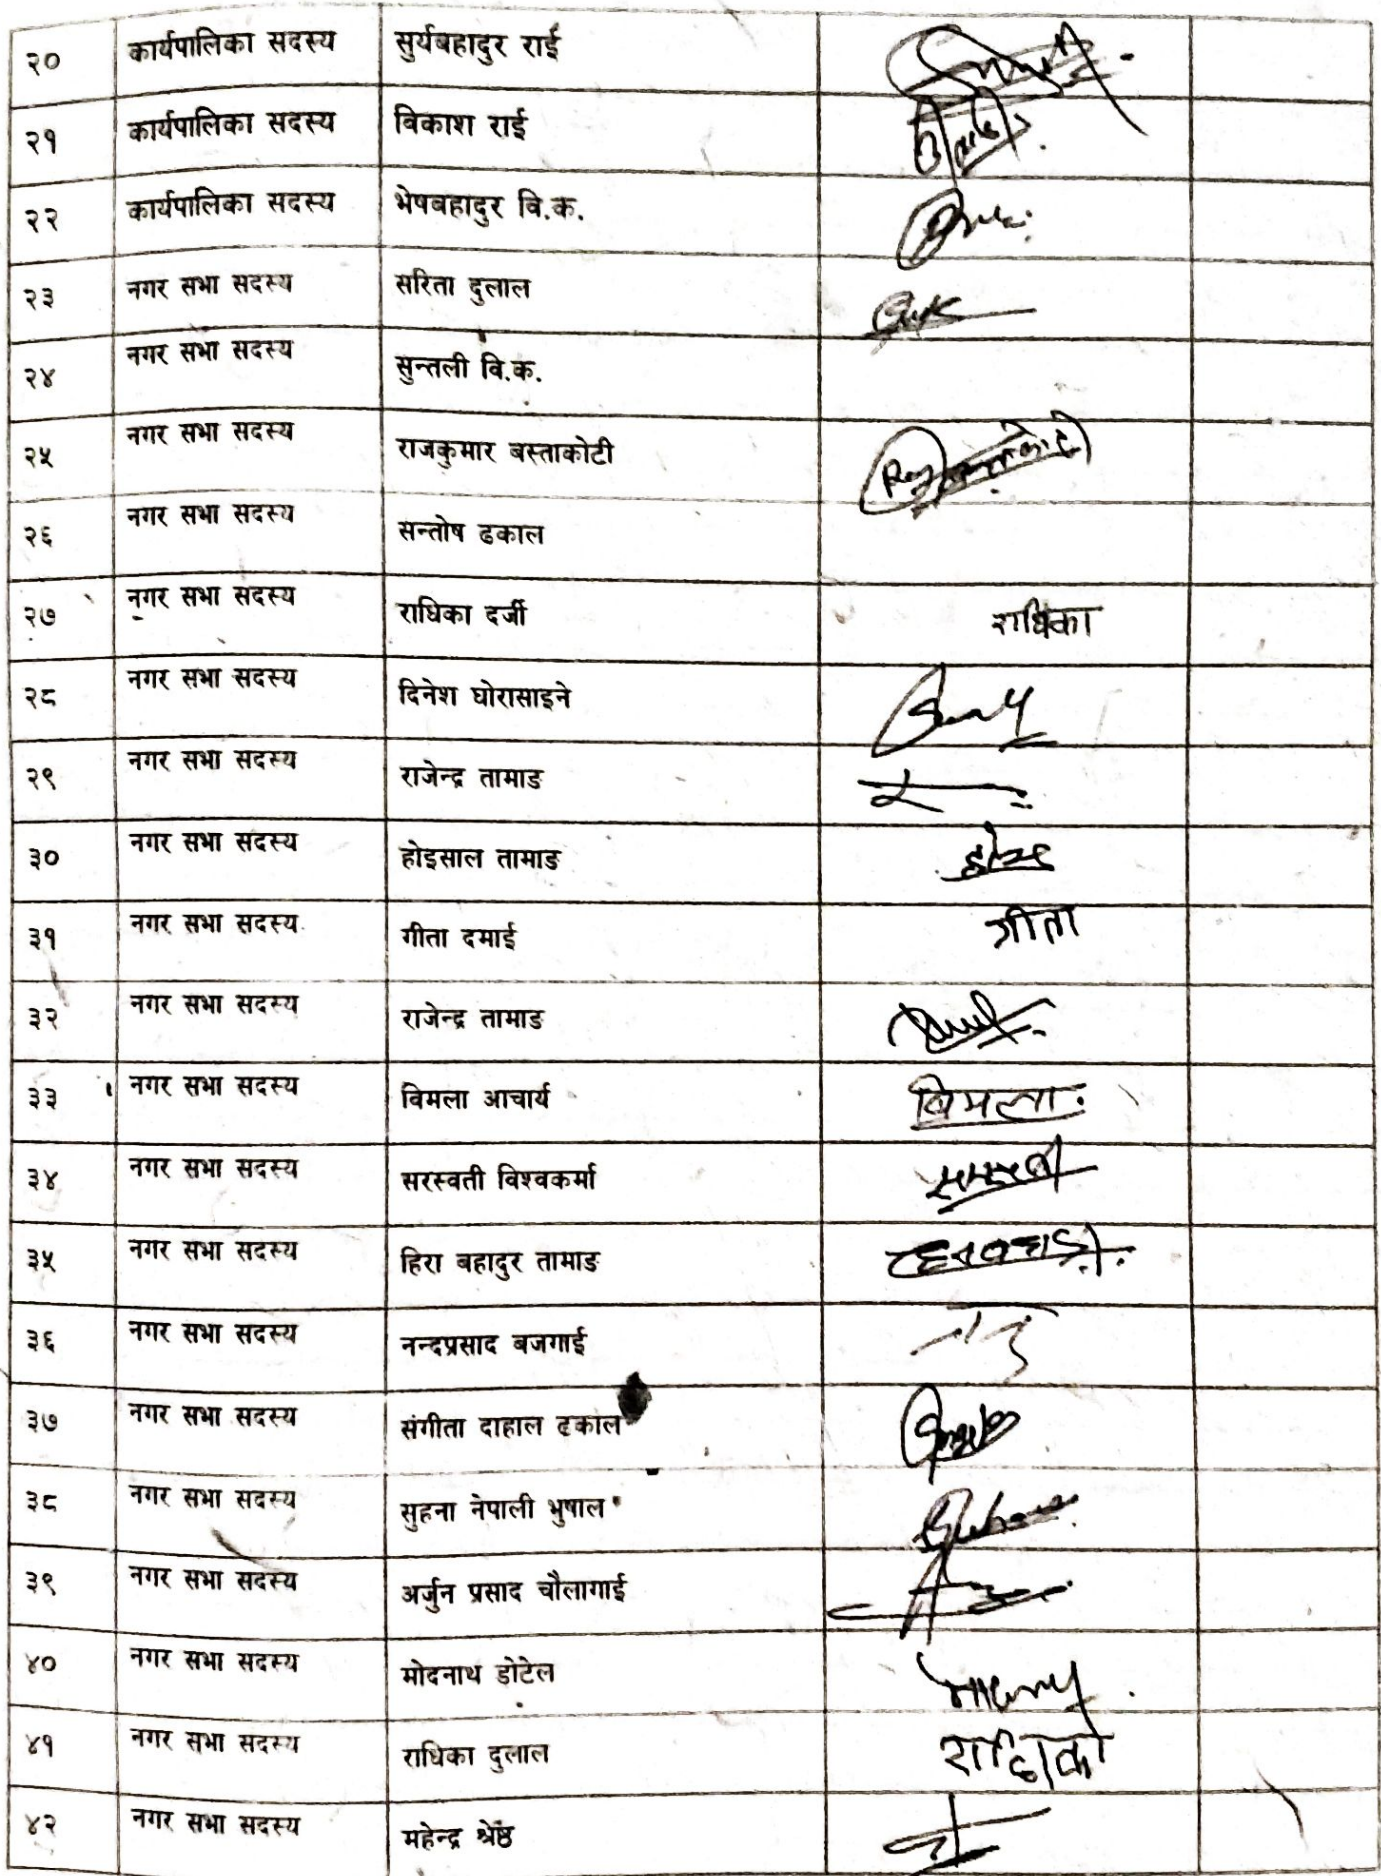 २० कार्यपालिका सदस्य सुर्यबहादुर राई
२१ कार्यपालिका सदस्य विकाश राई
२२ कार्यपालिका सदस्य भेषबहादुर वि.क.
२३ नगर सभा सदस्य सरिता दुलाल
२४ नगर सभा सदस्य सुन्तली वि.क.
२५ नगर सभा सदस्य राजकुमार बस्ताकोटी
२६ नगर सभा सदस्य सन्तोष ढकाल
२७ नगर सभा सदस्य राधिका दर्जी राधिका
२८ नगर सभा सदस्य दिनेश घोरासाइने
२९ नगर सभा सदस्य राजेन्द्र तामाङ
३० नगर सभा सदस्य होइसाल तामाङ
३१ नगर सभा सदस्य गीता दमाई गीता
३२ नगर सभा सदस्य राजेन्द्र तामाङ
३३ नगर सभा सदस्य विमला आचार्य बिमला
३४ नगर सभा सदस्य सरस्वती विश्वकर्मा
३५ नगर सभा सदस्य हिरा बहादुर तामाङ
३६ नगर सभा सदस्य नन्दप्रसाद बजगाई
३७ नगर सभा सदस्य संगीता दाहाल ढकाल
३८ नगर सभा सदस्य सुहना नेपाली भुषाल
३९ नगर सभा सदस्य अर्जुन प्रसाद चौलागाई
४० नगर सभा सदस्य मोदनाथ डोटेल
४१ नगर सभा सदस्य राधिका दुलाल
४२ नगर सभा सदस्य महेन्द्र श्रेष्ठ